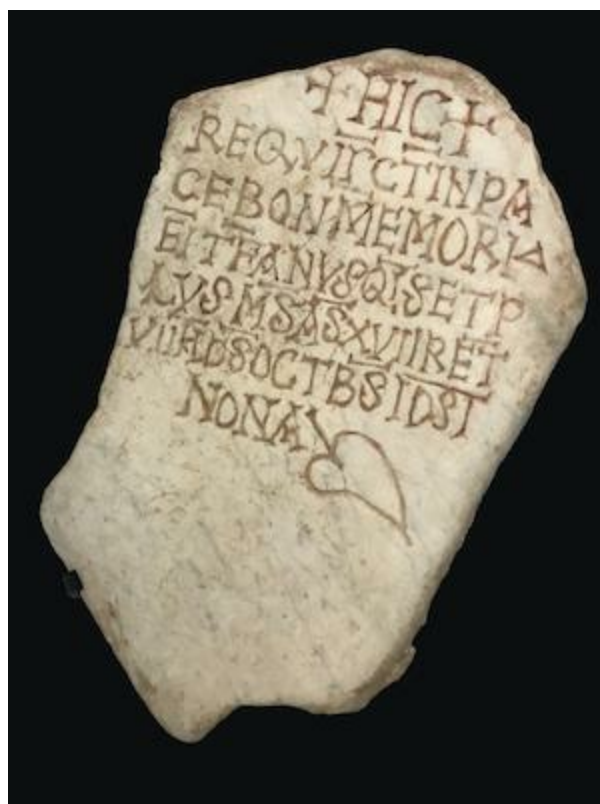 + HIC +
REQVIICTINPA
CEBONMEMORIA
EITFANVSQISETP
LVSMSASXVIIRET
VIIHDSOCTBSIDST
NONA